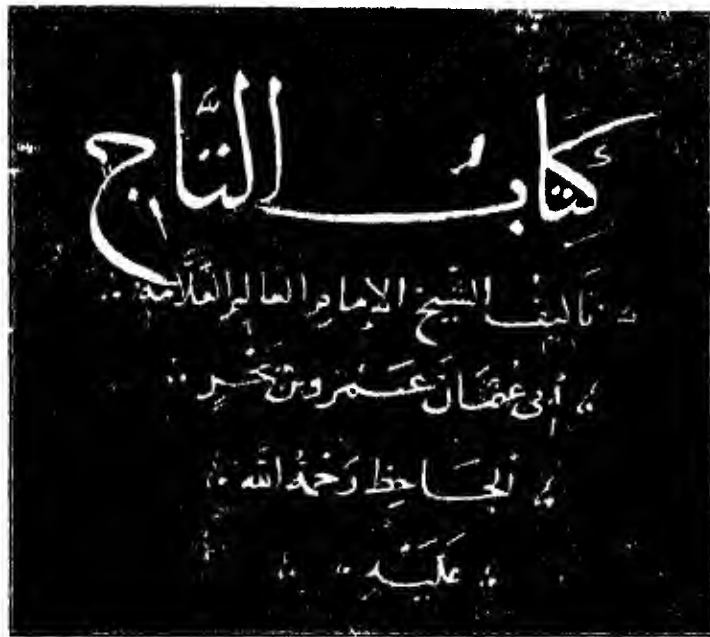 كِتَابُ التَّاج
تأليف الشيخ الإمام العالم العلامة
أبي عثمان عمرو بن بحر
الجاحظ رحمة الله
عليه